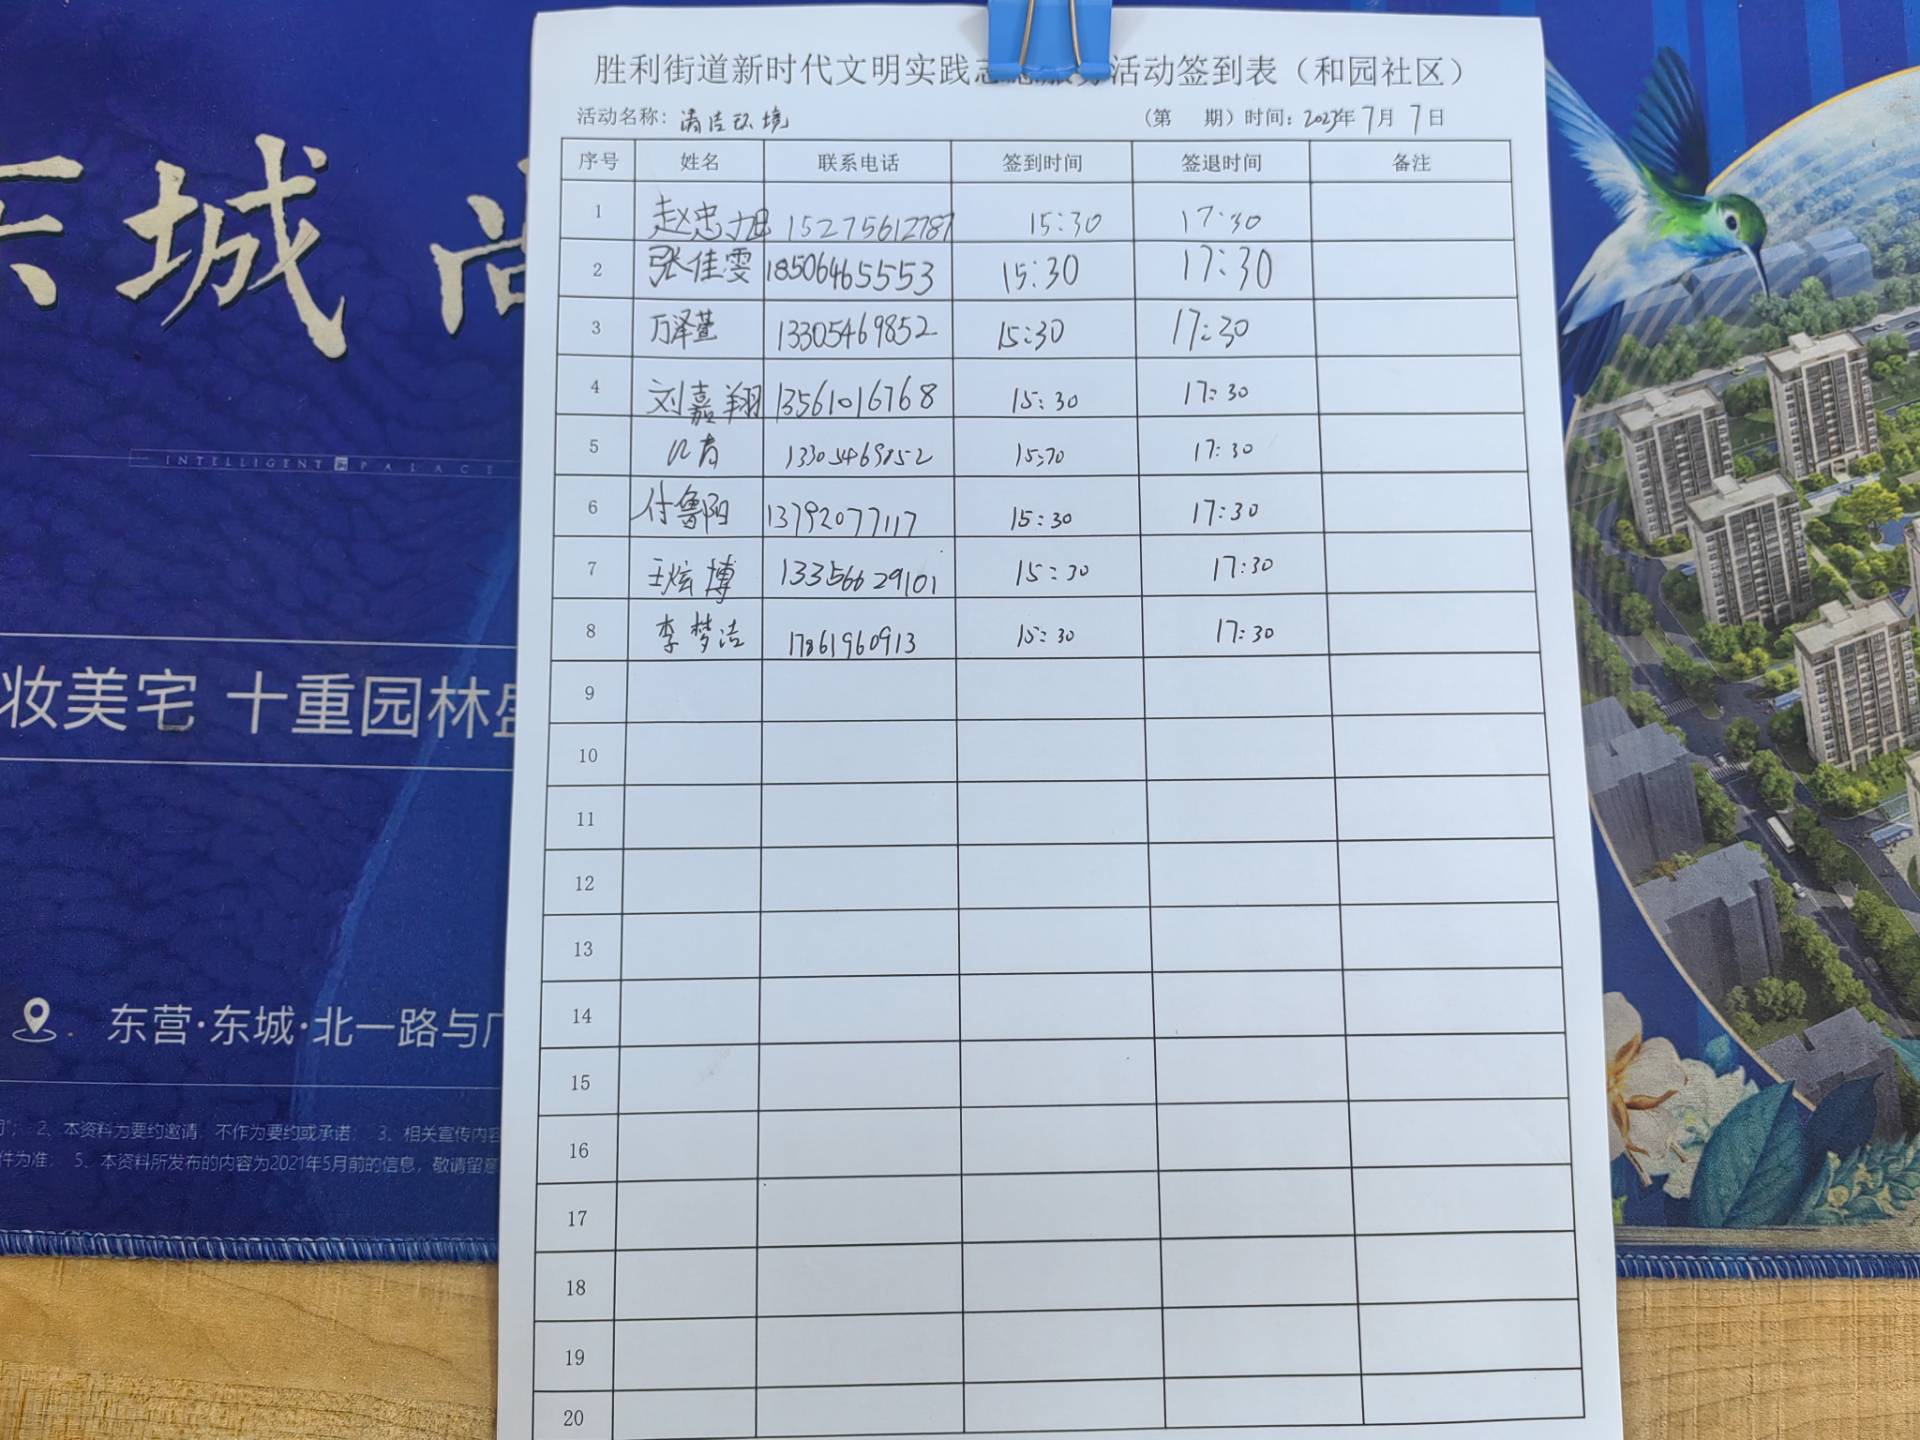 胜利街道新时代文明实践志愿服务活动签到表（和园社区）
活动名称：清洁环境 （第 期）时间：2023年7月7日
序号 姓名 联系电话 签到时间 签退时间 备注
1 赵忠旭 15275612787 15:30 17:30
2 张佳雯 18506465553 15:30 17:30
3 万泽萱 13305469852 15:30 17:30
4 刘嘉翔 13561016768 15:30 17:30
5 13305469852 15:30 17:30
6 付鲁阳 13792077117 15:30 17:30
7 王炫博 13356629101 15:30 17:30
8 李梦洁 17861960913 15:30 17:30
9
10
11
12
13
14
15
16
17
18
19
20
东城 尚
INTELLIGENT PALACE
妆美宅 十重园林盛
东营·东城·北一路与广
2、本资料为要约邀请，不作为要约或承诺； 3、相关宣传内容
件为准； 5、本资料所发布的内容为2021年5月前的信息，敬请留意